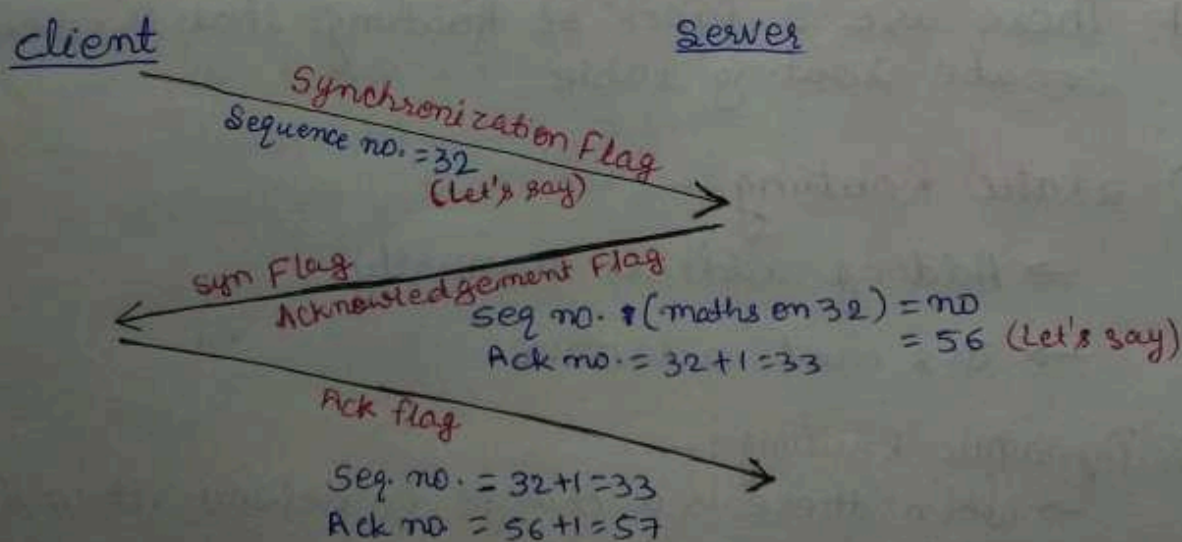 Client
Server
Synchronization Flag
Sequence no. = 32
(Let's say)
Syn Flag
Acknowledgement Flag
Seq no. (maths on 32) = no
= 56 (Let's say)
Ack no. = 32+1 = 33
Ack flag
Seq. no. = 32+1 = 33
Ack no = 56+1 = 57